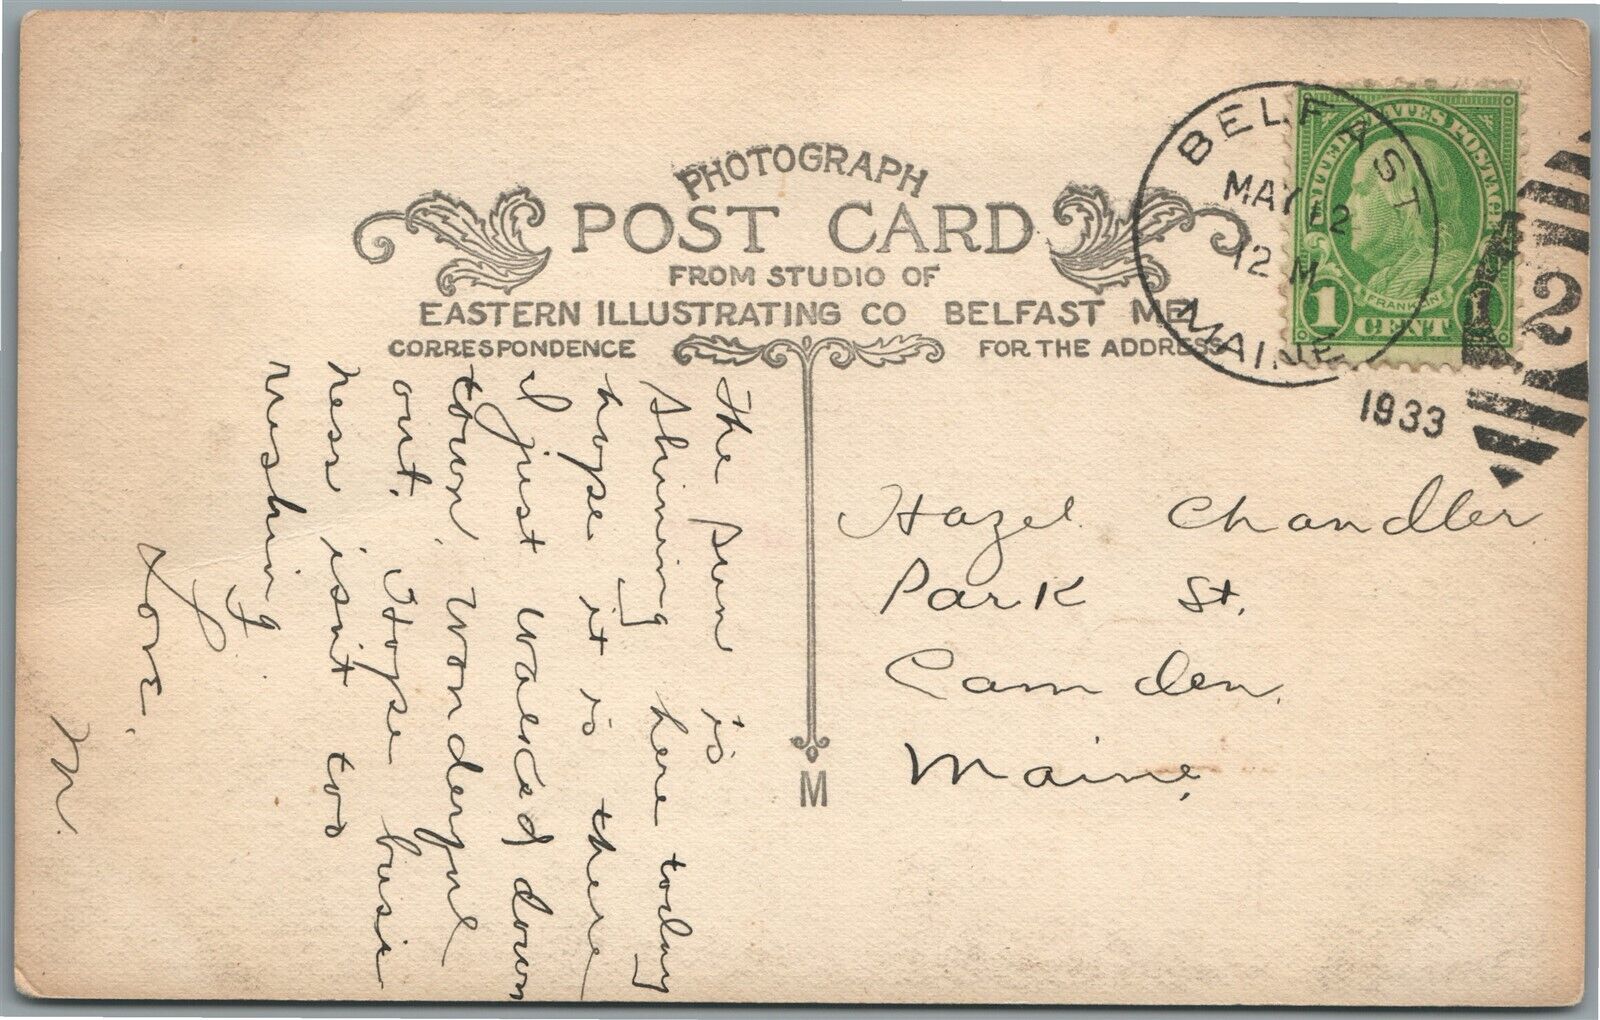 PHOTOGRAPH
POST CARD
FROM STUDIO OF
EASTERN ILLUSTRATING CO BELFAST ME
CORRESPONDENCE
FOR THE ADDRESS
M
BELFAST
MAY 12
12 M
MAINE
1933
UNITED STATES POSTAGE
FRANKLIN
1 CENT 1
2
Hazel Chandler
Park St.
Camden,
Maine,
The sun is
shining here today
hope it is there
I just walked down
town, Wonderful
out. Hope busi
ness isn't too
rushing
Love,
M.